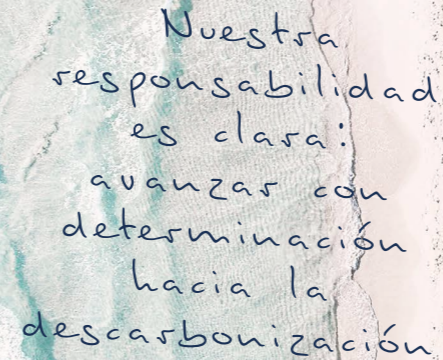 Nuestra
responsabilidad
es clara:
avanzar con
determinación
hacia la
descarbonización